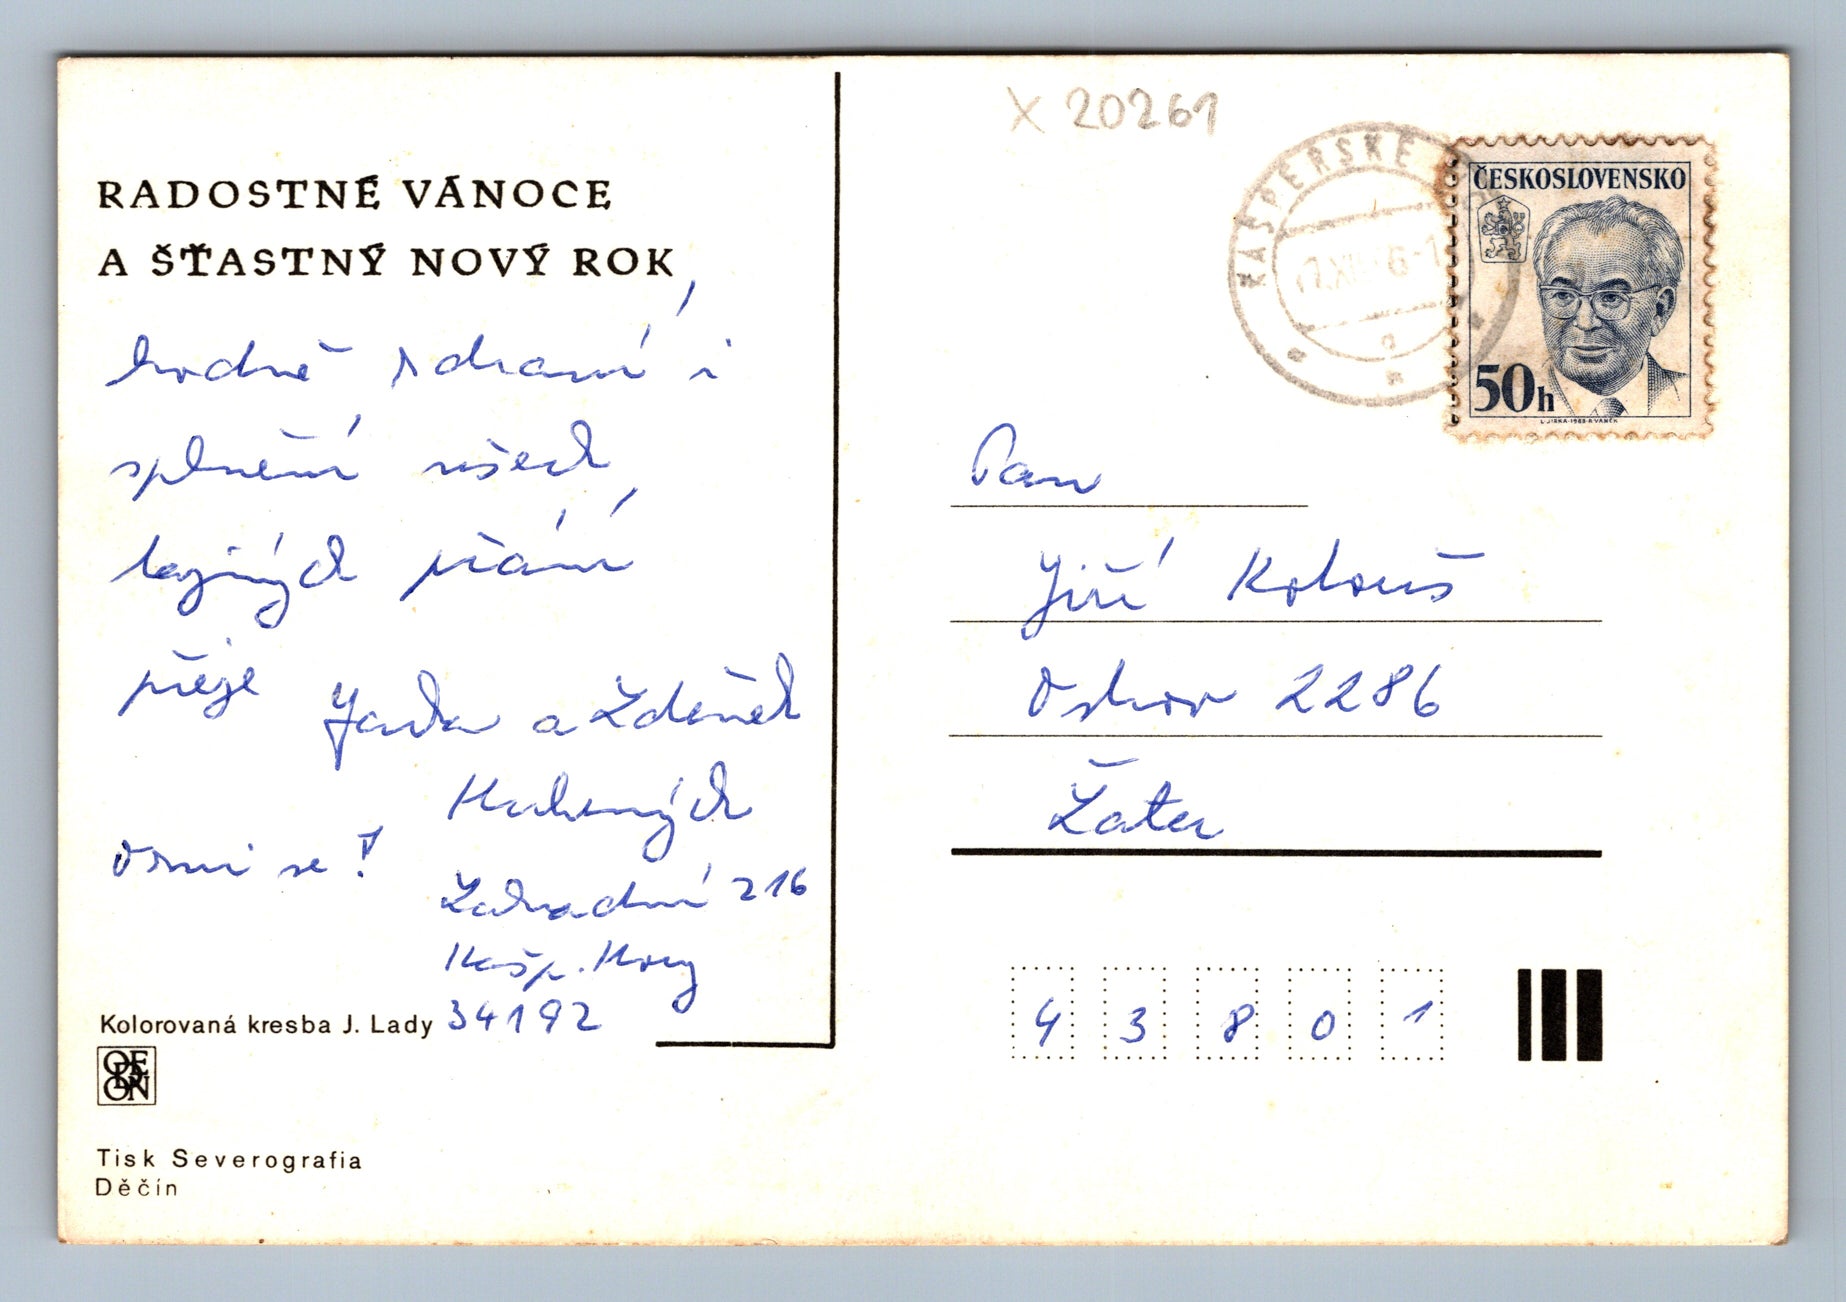 RADOSTNÉ VÁNOCE
A ŠŤASTNÝ NOVÝ ROK
hodně zdraví i
splnění všech
tajných přání
přeje Jarka a Zdeněk
ozvi se!
Zahradní 216
Kašp. Hory
34192
Kolorovaná kresba J. Lady
ODEON
Tisk Severografia
Děčín
X 20261
KAŠPERSKÉ
ČESKOSLOVENSKO
50h
L.JIRKA-1988-R.VANĚK
Pan
Jiří Kolouš
Ostrov 2286
Žatec
43801